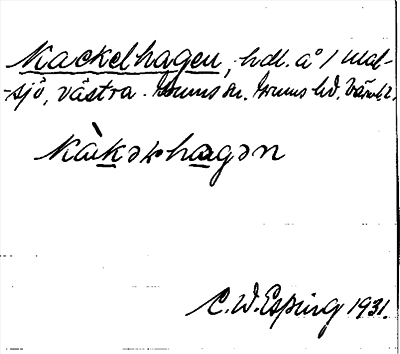 Kackelhagen, hdl. å 1 Mal-
-sjö, västra. Emms sn. Emms hd. Värml.
Kàkəkhagən
C. W. Esping 1931.